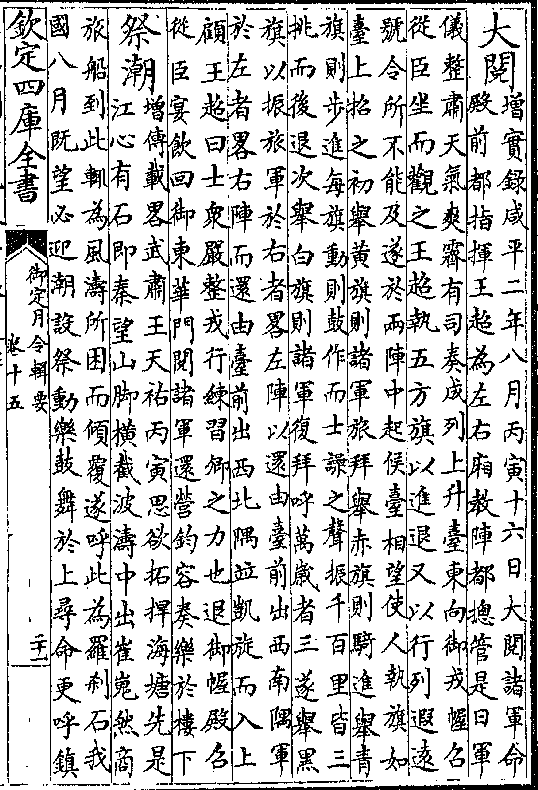 大閱增實錄咸平二年八月丙寅十六日大閱諸軍命
殿前都指揮王超為左右廂教陣都摠管是日軍
儀整肅天氣爽霽有司奏成列上升臺東向御戎幄召
從臣坐而觀之王超執五方旗以進退又以行列遐遠
號令所不能及遂於兩陣中起候臺相望使人執旗如
臺上招之初舉黃旗則諸軍旅拜舉赤旗則騎進舉青
旗則步進每旗動則鼓作而士譟之聲振千百里皆三
挑而後退次舉白旗則諸軍復拜呼萬歲者三遂舉黑
旗以振旅軍於右者畧左陣以還由臺前出西南隅軍
於左者畧右陣而還由臺前出西北隅並凱旋而入上
顧王超曰士衆嚴整戎行練習卿之力也退御幄殿召
從臣宴飲回御東華門閱諸軍還營鈞容奏樂於樓下
祭潮增傳載畧武肅王天祐丙寅思欲拓捍海塘先是
江心有石即秦望山脚橫截波濤中出崔嵬然商
旅船到此輒為風濤所困而傾覆遂呼此為羅刹石我
國八月既望必迎潮設祭動樂鼓舞於上尋命更呼鎮
欽定四庫全書
御定月令輯要
卷十五
二十一